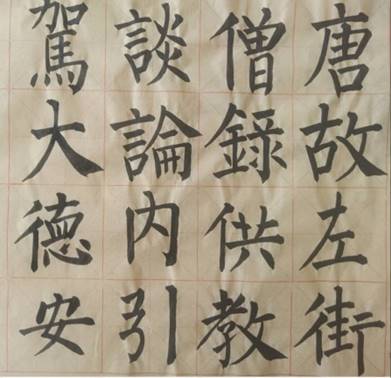 唐故左街
僧錄供教
談論內引
駕大德安